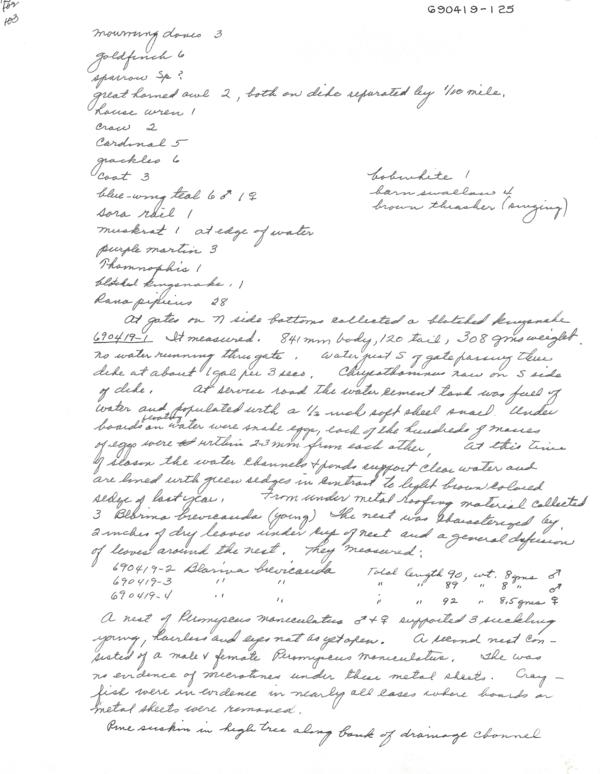 690419-125
mourning doves 3
goldfinch 6
sparrow sp?
great horned owl 2, both on dike separated by 1/10 mile.
house wren 1
crow 2
Cardinal 5
grackles 6
coot 3
bobwhite 1
blue-wing teal 6♂ 1♀
barn swallow 4
sora rail 1
brown thrasher (singing)
muskrat 1 at edge of water
purple martin 3
Thamnophis 1
blotched kingsnake 1
Rana pipiens 28
At gates on N side bottoms collected a blotched kingsnake
690419-1 It measured. 841 mm body, 120 tail, 308 gms weight.
no water running thru gate. Water just S of gate passing thru
dike at about 1 gal per 3 secs. Chrysothamnus now on S side
of dike. At service road the water cement tank was full of
water and populated with a 1/2 inch soft shell snail. Under
boards floating on water were snake eggs, each of the hundreds of masses
of eggs were within 2-3 mm from each other. At this time
of season the water channels & ponds support clear water and
are lined with green sedges in contrast to light brown colored
sedge of last year. From under metal roofing material collected
3 Blarina brevicauda (young) The nest was characterized by
2 inches of dry leaves under cup of nest and a general
of leaves around the nest. They measured:
690419-2 Blarina brevicauda Total length 90, wt. 8 gms ♂
690419-3 " " " 89 " 8 " ♂
690419-4 " " " 92 " 8.5 gms ♀
A nest of Peromyscus maniculatus ♂+♀ supported 3 suckling
young, hairless and eyes not as yet open. A second nest con-
sisted of a male & female Peromyscus maniculatus. The was
no evidence of microtines under these metal sheets. Cray-
fish were in evidence in nearly all cases where boards or
metal sheets were removed.
Pine siskin in high tree along bank of drainage channel